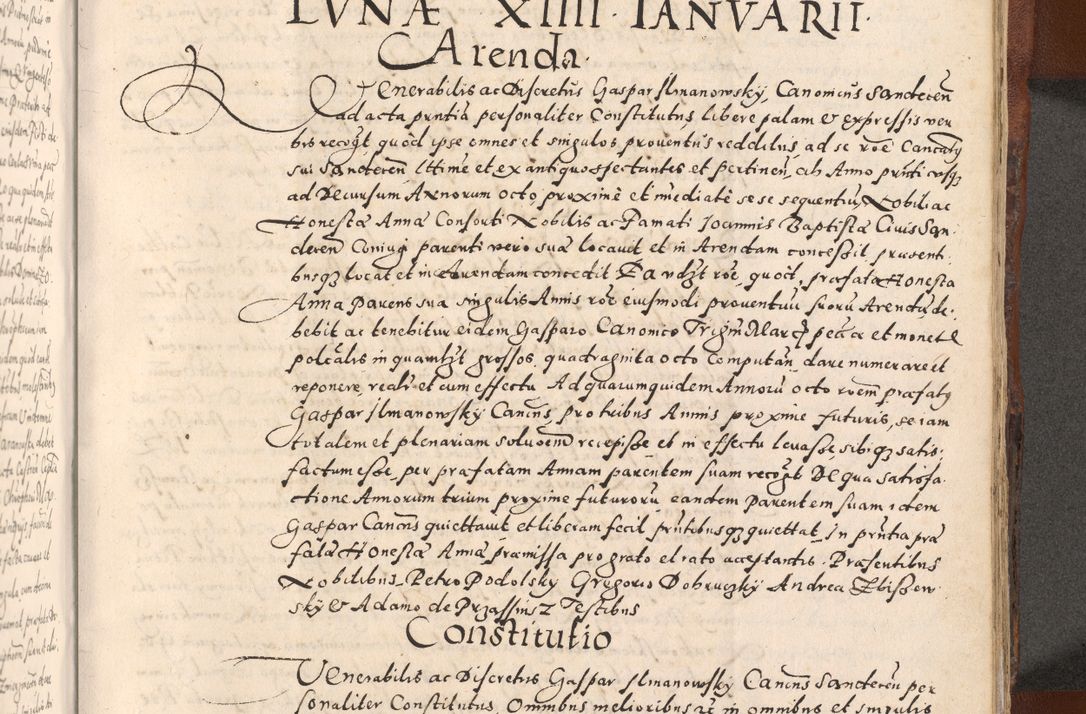 LVNÆ XIIII IANVARII.
Arenda.
VEnerabilis ac Discretus Gaspar Ilmanowsky, Canonicus Sandecen̄
ad acta pn̄tia personaliter Constitutus, libere palam et expressis ver
bis recog̃t, quod ipse omnes et singulos prouentus redditus, ad se rōe Canc̄atg
sui Sandecen̄ Ittime et, ex antiquo spectantes et pertinen̄, ab Anno pn̄ti usq₃
ad Decursum Annorum octo proximè et immediatè sese sequentiu, Nobili ac
Honestæ Annæ Consorti Nobilis ac Famati Ioannis Baptistæ Ciuis San-
decen̄ Coniugi parenti vero suæ locauit et in Arendam concessit, præsenti-
busq₃ locat et in Arendam concedit Ea condit̄ rōe, quod, præfata Honesta
Anna Parens sua singulis Annis rōe eiusmodi prouentuu suoru Arendæ de-
bebit ac tenebitur eidem Gasparo Canonico Triginta Marc̄ pec̄cæ et monetæ
polc̄alis in quamlib̄t grossos, quadraginta octo Computan̄, dare numerare et
reponere, realr et cum effectu Ad quarum quidem Annoru octo roem̄ præfatg
Gaspar Ilmanowsky Canc̄us pro tribus Annis proxime futuris, se iam
totalem et plenariam soluoem̄ recepisse et in effectu leuasse, sibiq₃ satis-
factum esse, per præfatam Annam parentem suam recog̃t De qua satisfa-
ctione Annorum trium proxime futuroru eandem Parentem suam idem
Gaspar Canc̄us quiettauit et liberam fecit pn̄tibusq₃ quiettat, In pn̄tia præ
fatæ Honestæ Annæ præmissa pro grato et rato acceptantis. Præsentibus
Nobilibus Petro Podolsky Gregorio Dobruczky Andrea Zbissew-
sky et Adamo de Przassinz Testibus
Constitutio
VEnerabilis ac Discretus Gaspar Ilmanowsky Canc̄us Sandecen̄ per
sonaliter Constitutus, Omnibus melioribus et in omnibus et singulis